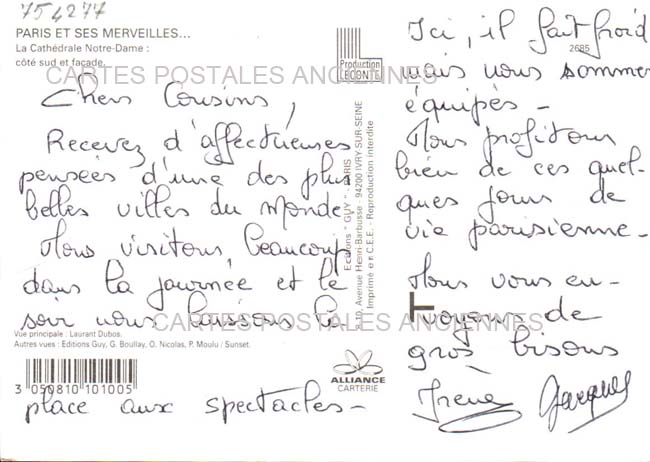 754277
PARIS ET SES MERVEILLES...
La Cathédrale Notre-Dame :
côté sud et façade.
CARTES POSTALES ANCIENNES
Chers Cousins,
Recevez d'affectueuses
pensées d'une des plus
belles villes du monde
Nous visitons beaucoup
dans la journée et le
soir nous laissons la
place aux spectacles -
Vue principale : Laurent Dubos.
Autres vues : Editions Guy, G. Boullay, O. Nicolas, P. Moulu / Sunset.
CARTES POSTALES ANCIENNES
3 050810 101005
Production
LECONTE
Editions " GUY " - PARIS
8-10, Avenue Henri-Barbusse - 94200 IVRY-SUR-SEINE
Imprimé en C.E.E. - Reproduction interdite
ALLIANCE
CARTERIE
2685
Ici, il fait froid
mais nous sommes
équipés -
Nous profitons
bien de ces quel-
ques jours de
vie parisienne -
Nous vous en-
voyons de
gros bisous
Irène Jacques